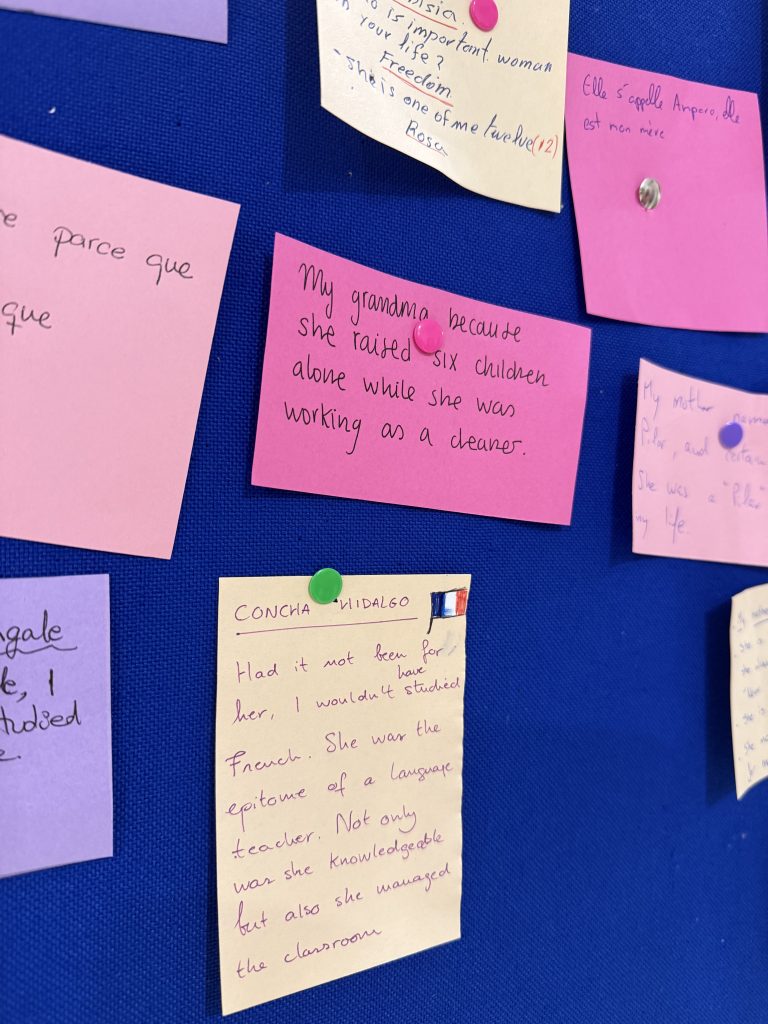 is important woman
your life?
Freedom
- She is one of me twelve (12)
Rosa
Elle s'appelle Amparo, elle
est mon mère
parce que
que
My grandma because
she raised six children
alone while she was
working as a cleaner.
My mother
Pilar, and certain
She was a "Pilar"
my life.
CONCHA HIDALGO
Had it not been for
her, I wouldn't have studied
French. She was the
epitome of a language
teacher. Not only
was she knowledgeable
but also she managed
the classroom
ngale
I
studied